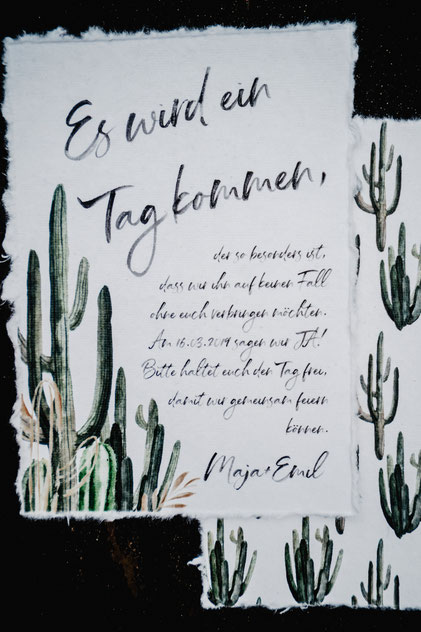 Es wird ein
Tag kommen,
der so besonders ist,
dass wir ihn auf keinen Fall
ohne euch verbringen möchten.
Am 16.03.2019 sagen wir JA!
Bitte haltet euch den Tag frei,
damit wir gemeinsam feiern
können.
Maja+Emil